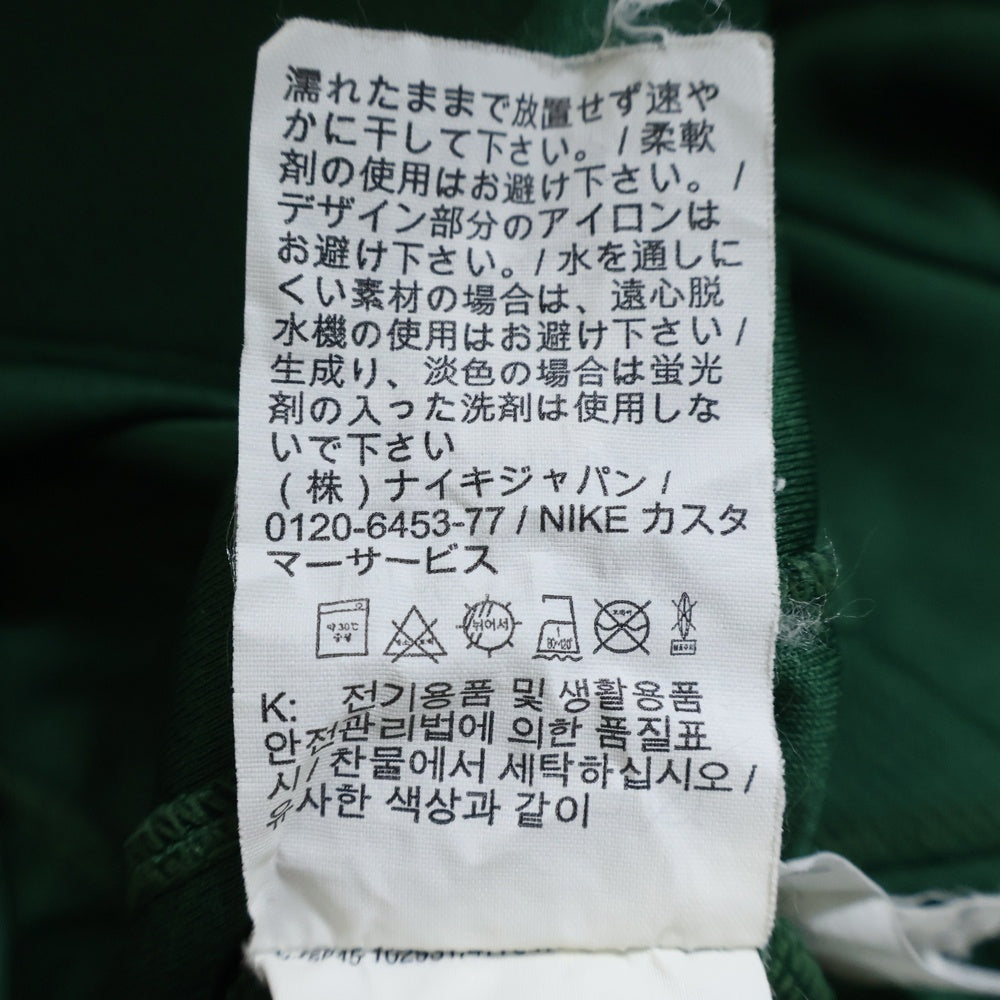 濡れたままで放置せず速や
かに干して下さい。/ 柔軟
剤の使用はお避け下さい。/
デザイン部分のアイロンは
お避け下さい。/ 水を通しに
くい素材の場合は、遠心脱
水機の使用はお避け下さい /
生成り、淡色の場合は蛍光
剤の入った洗剤は使用しな
いで下さい
(株)ナイキジャパン /
0120-6453-77 / NIKE カスタ
マーサービス
약 30℃
중성
뉘어서
1
80~120℃
드라이
K: 전기용품 및 생활용품
안전관리법에 의한 품질표
시 / 찬물에서 세탁하십시오 /
유사한 색상과 같이